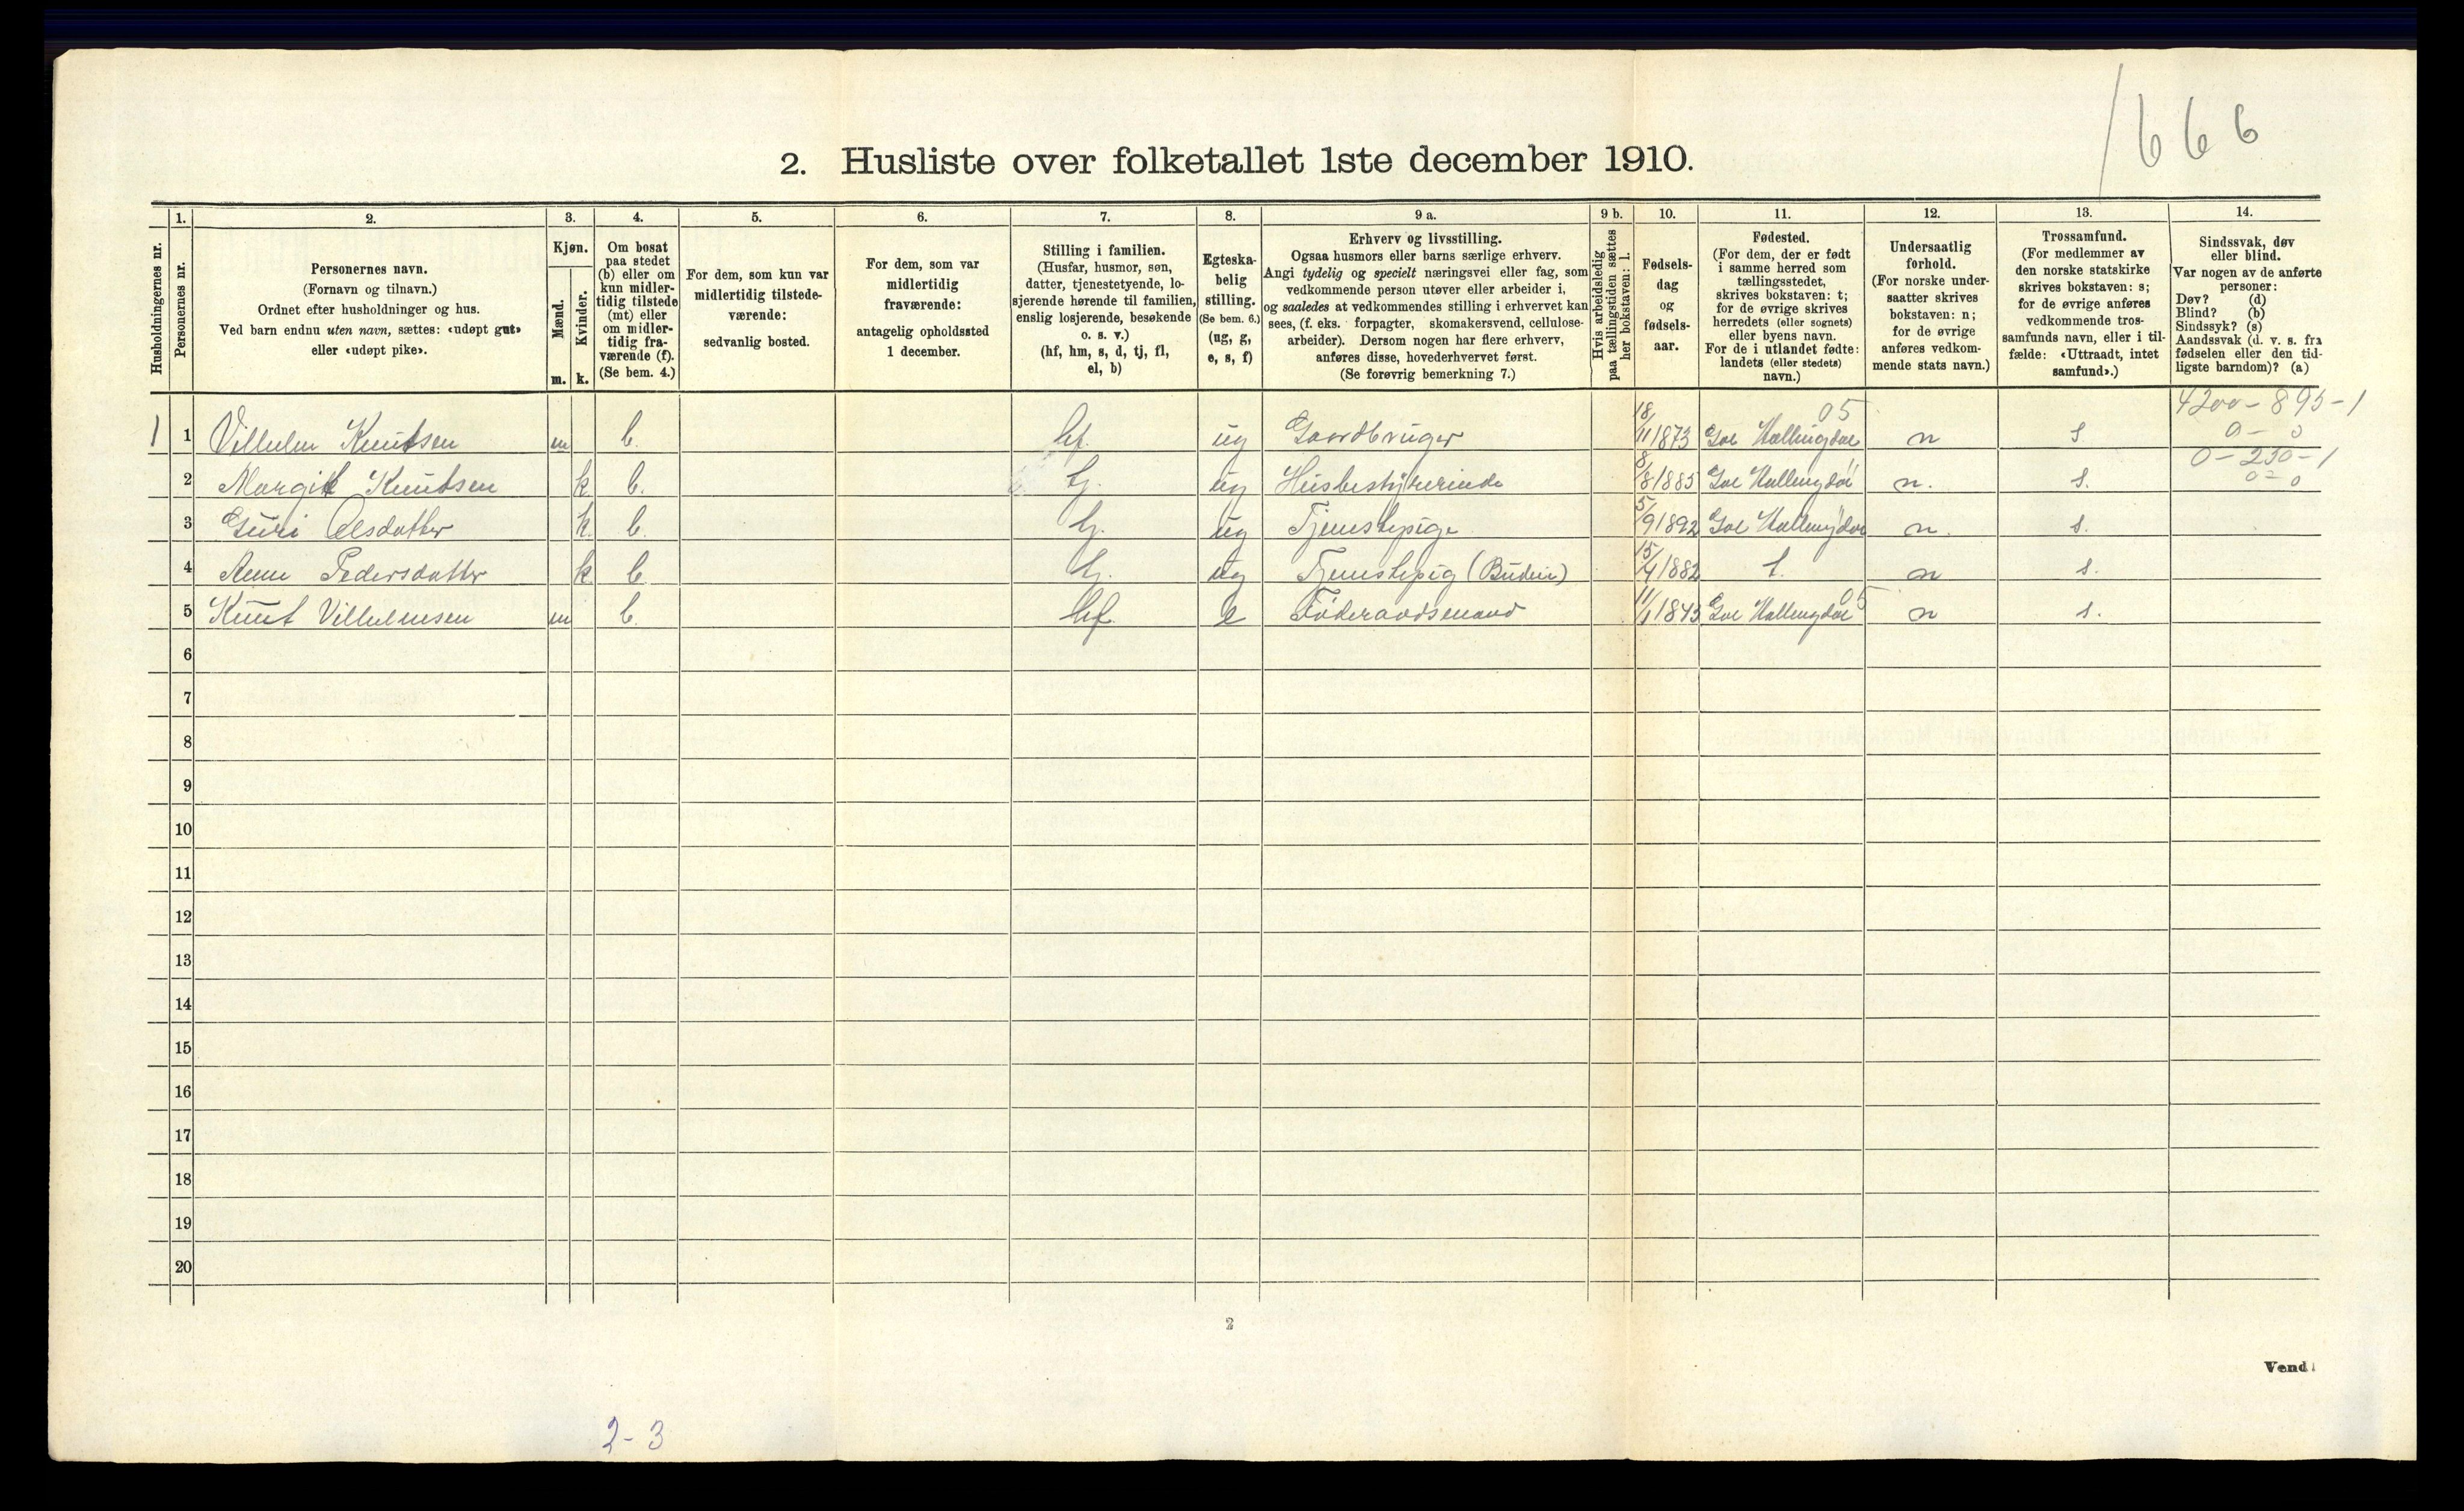 1666
2. Husliste over folketallet 1ste december 1910.
Husholdningernes nr.
1. Personernes nr.
2. Personernes navn. (Fornavn og tilnavn.) Ordnet efter husholdninger og hus. Ved barn endnu uten navn, sættes: «udøpt gut» eller «udøpt pike».
3. Kjøn. Mænd. m. Kvinder. k.
4. Om bosat paa stedet (b) eller om kun midlertidig tilstede (mt) eller om midlertidig fraværende (f). (Se bem. 4.)
5. For dem, som kun var midlertidig tilstedeværende: sedvanlig bosted.
6. For dem, som var midlertidig fraværende: antagelig opholdssted 1 december.
7. Stilling i familien. (Husfar, husmor, søn, datter, tjenestetyende, losjerende hørende til familien, enslig losjerende, besøkende o. s. v.) (hf, hm, s, d, tj, fl, el, b)
8. Egteskabelig stilling. (Se bem. 6.) (ug, g, e, s, f)
9 a. Erhverv og livsstilling. Ogsaa husmors eller barns særlige erhverv. Angi tydelig og specielt næringsvei eller fag, som vedkommende person utøver eller arbeider i, og saaledes at vedkommendes stilling i erhvervet kan sees, (f. eks. forpagter, skomakersvend, cellulosearbeider). Dersom nogen har flere erhverv, anføres disse, hovederhvervet først. (Se forøvrig bemerkning 7.)
9 b. Hvis arbeidsledig paa tællingstiden sættes her bokstaven: l.
10. Fødselsdag og fødselsaar.
11. Fødested. (For dem, der er født i samme herred som tællingsstedet, skrives bokstaven: t; for de øvrige skrives herredets (eller sognets) eller byens navn. For de i utlandet fødte: landets (eller stedets) navn.)
12. Undersaatlig forhold. (For norske undersaatter skrives bokstaven: n; for de øvrige anføres vedkommende stats navn.)
13. Trossamfund. (For medlemmer av den norske statskirke skrives bokstaven: s; for de øvrige anføres vedkommende trossamfunds navn, eller i tilfælde: «Uttraadt, intet samfund».)
14. Sindssvak, døv eller blind. Var nogen av de anførte personer: Døv? (d) Blind? (b) Sindssyk? (s) Aandssvak (d. v. s. fra fødselen eller den tidligste barndom)? (a)
05 4200-895-1
1 1 Villulm Knutsen m b. hf. ug Gaardbruger 18/11 1873 Gol Hallingdal n s. 0-0
0-250-1
2 Margit Knutsen k b. tj. ug Husbestyrerinde 8/8 1885 Gol Hallingdal n. s. 0-0
3 Guri Olsdatter k. b. tj. ug Tjenstepige 5/9 1892 Gol Hallingdal n. s.
4 Anne Pedersdatter k b tj. ug Tjenstepig (Budeie) 15/4 1882 t. n s.
05
5 Knut Villulmsen m b. hf. e Føderaadsmand 11/1 1843 Gol Hallingdal n s.
6
7
8
9
10
11
12
13
14
15
16
17
18
19
20
2
Vend!
2-3